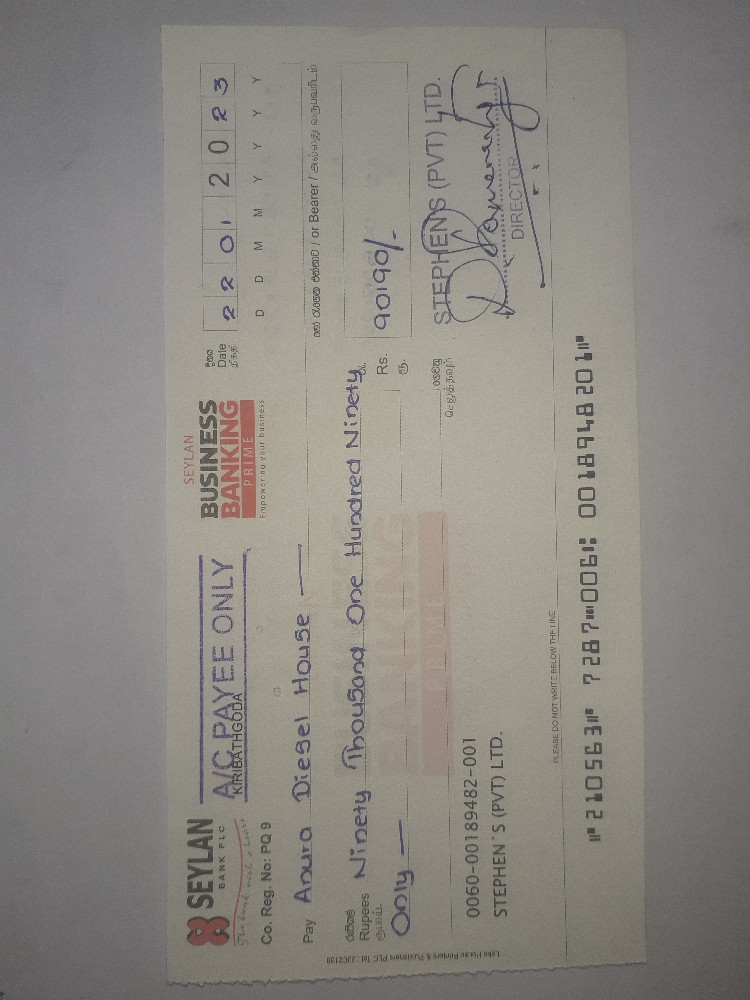 SEYLAN
BANK PLC
The bank with a heart
Co. Reg. No: PQ 9
A/C PAYEE ONLY
KIRIBATHGODA
SEYLAN
BUSINESS
BANKING
PRIME
Empowering your business
දිනය
Date
திகதி
2 2 0 1 2 0 2 3
D D M M Y Y Y Y
Pay Anura Diesel House
හෝ රැගෙන එන්නාට / or Bearer / அல்லது வருபவரிடம்
රුපියල්
Rupees
ரூபாய்
Ninety Thousand One Hundred Ninety
Only
රු.
Rs.
ரூ.
90190/-
ගෙවන්න
செலுத்தவும்
0060-00189482-001
STEPHEN`S (PVT) LTD.
STEPHEN'S (PVT) LTD.
DIRECTOR
PLEASE DO NOT WRITE BELOW THE LINE
⑈210563⑈ 7287⑉006⑆ 0018948201⑈
Lake House Printers & Publishers PLC Tel : 2302139